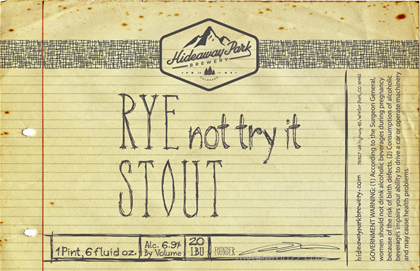 Hideaway Park
BREWERY
COLORADO
RYE not try it
STOUT
1 Pint, 6 fluid oz.
Alc. 6.9%
By Volume
20
IBU
FOUNDER
hideawayparkbrewery.com
GOVERNMENT WARNING: (1) According to the Surgeon General,
women should not drink alcoholic beverages during pregnancy
because of the risk of birth defects. (2) Consumption of alcoholic
beverages impairs your ability to drive a car or operate machinery
and may cause health problems.